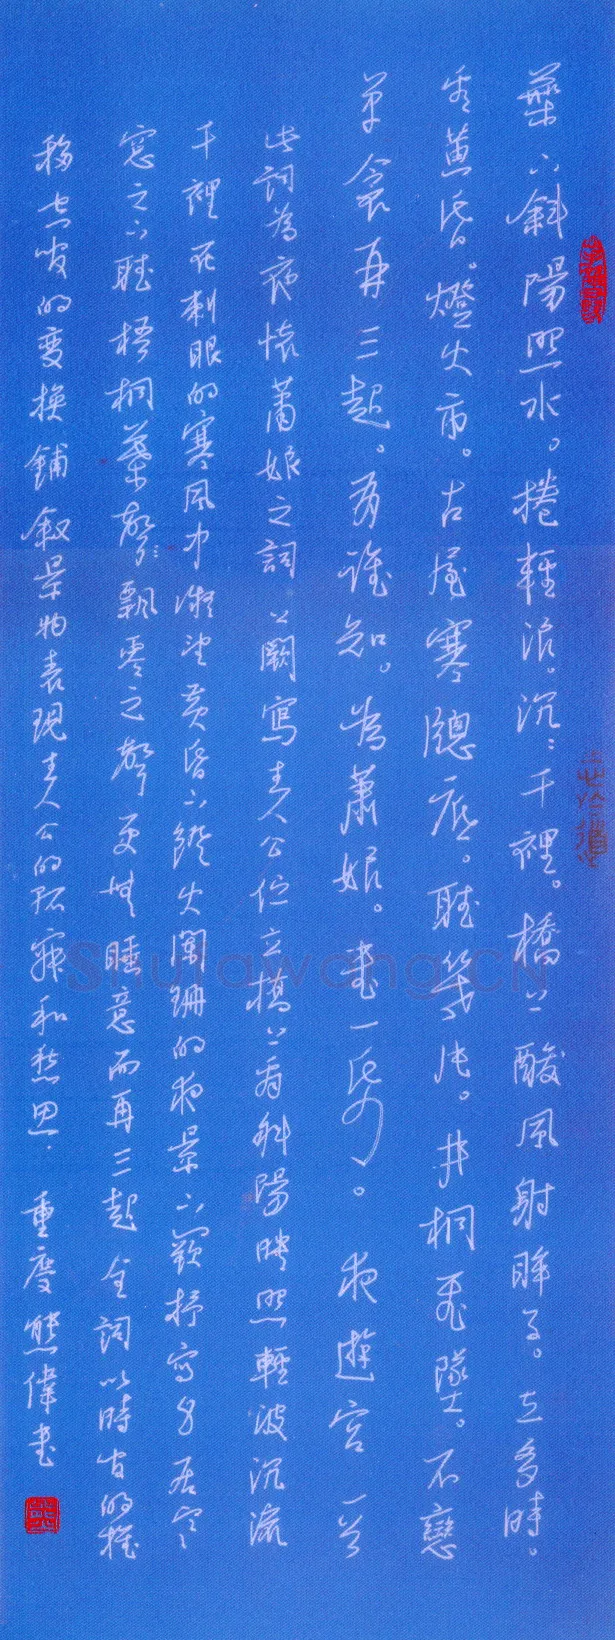 葉下斜陽照水。捲輕浪。沉沉千裡。橋上酸風射眸子。立多時。
看黃昏。燈火市。古屋寒牕底。聽幾片。井桐飛墜。不戀
單衾再三起。有誰知。為蕭娘。書一紙。 夜遊宮一首
此詞為夜懷蕭娘之詞 上闋寫主人公位立橋上看斜陽映照輕波沉流
千裡 在刺眼的寒風中凝望黃昏下燈火闌珊的夜景 下闋抒寫身居寒
窓之下聽梧桐葉聲聲飄零之聲 更無睡意而再三起 全詞以時间的推
移 空间的变换 鋪叙景物 表現主人公的孤寂和愁思. 重慶熊偉书
Shufawang.CN